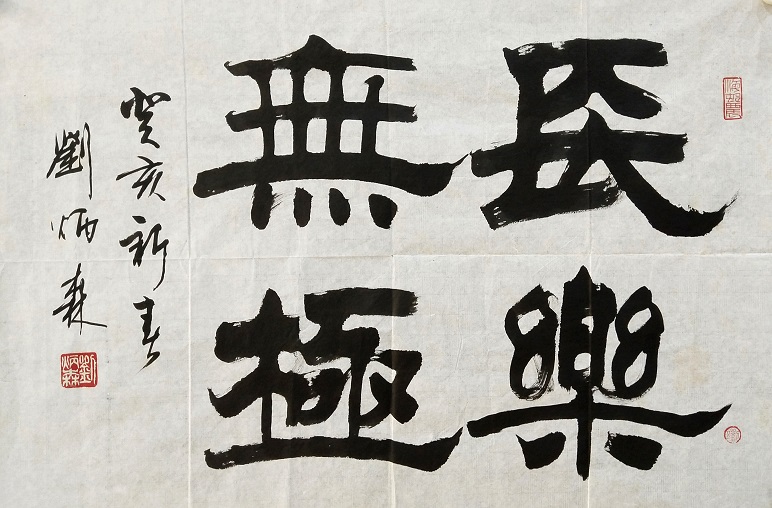 長樂
無極
癸亥新春
劉炳森
劉炳森